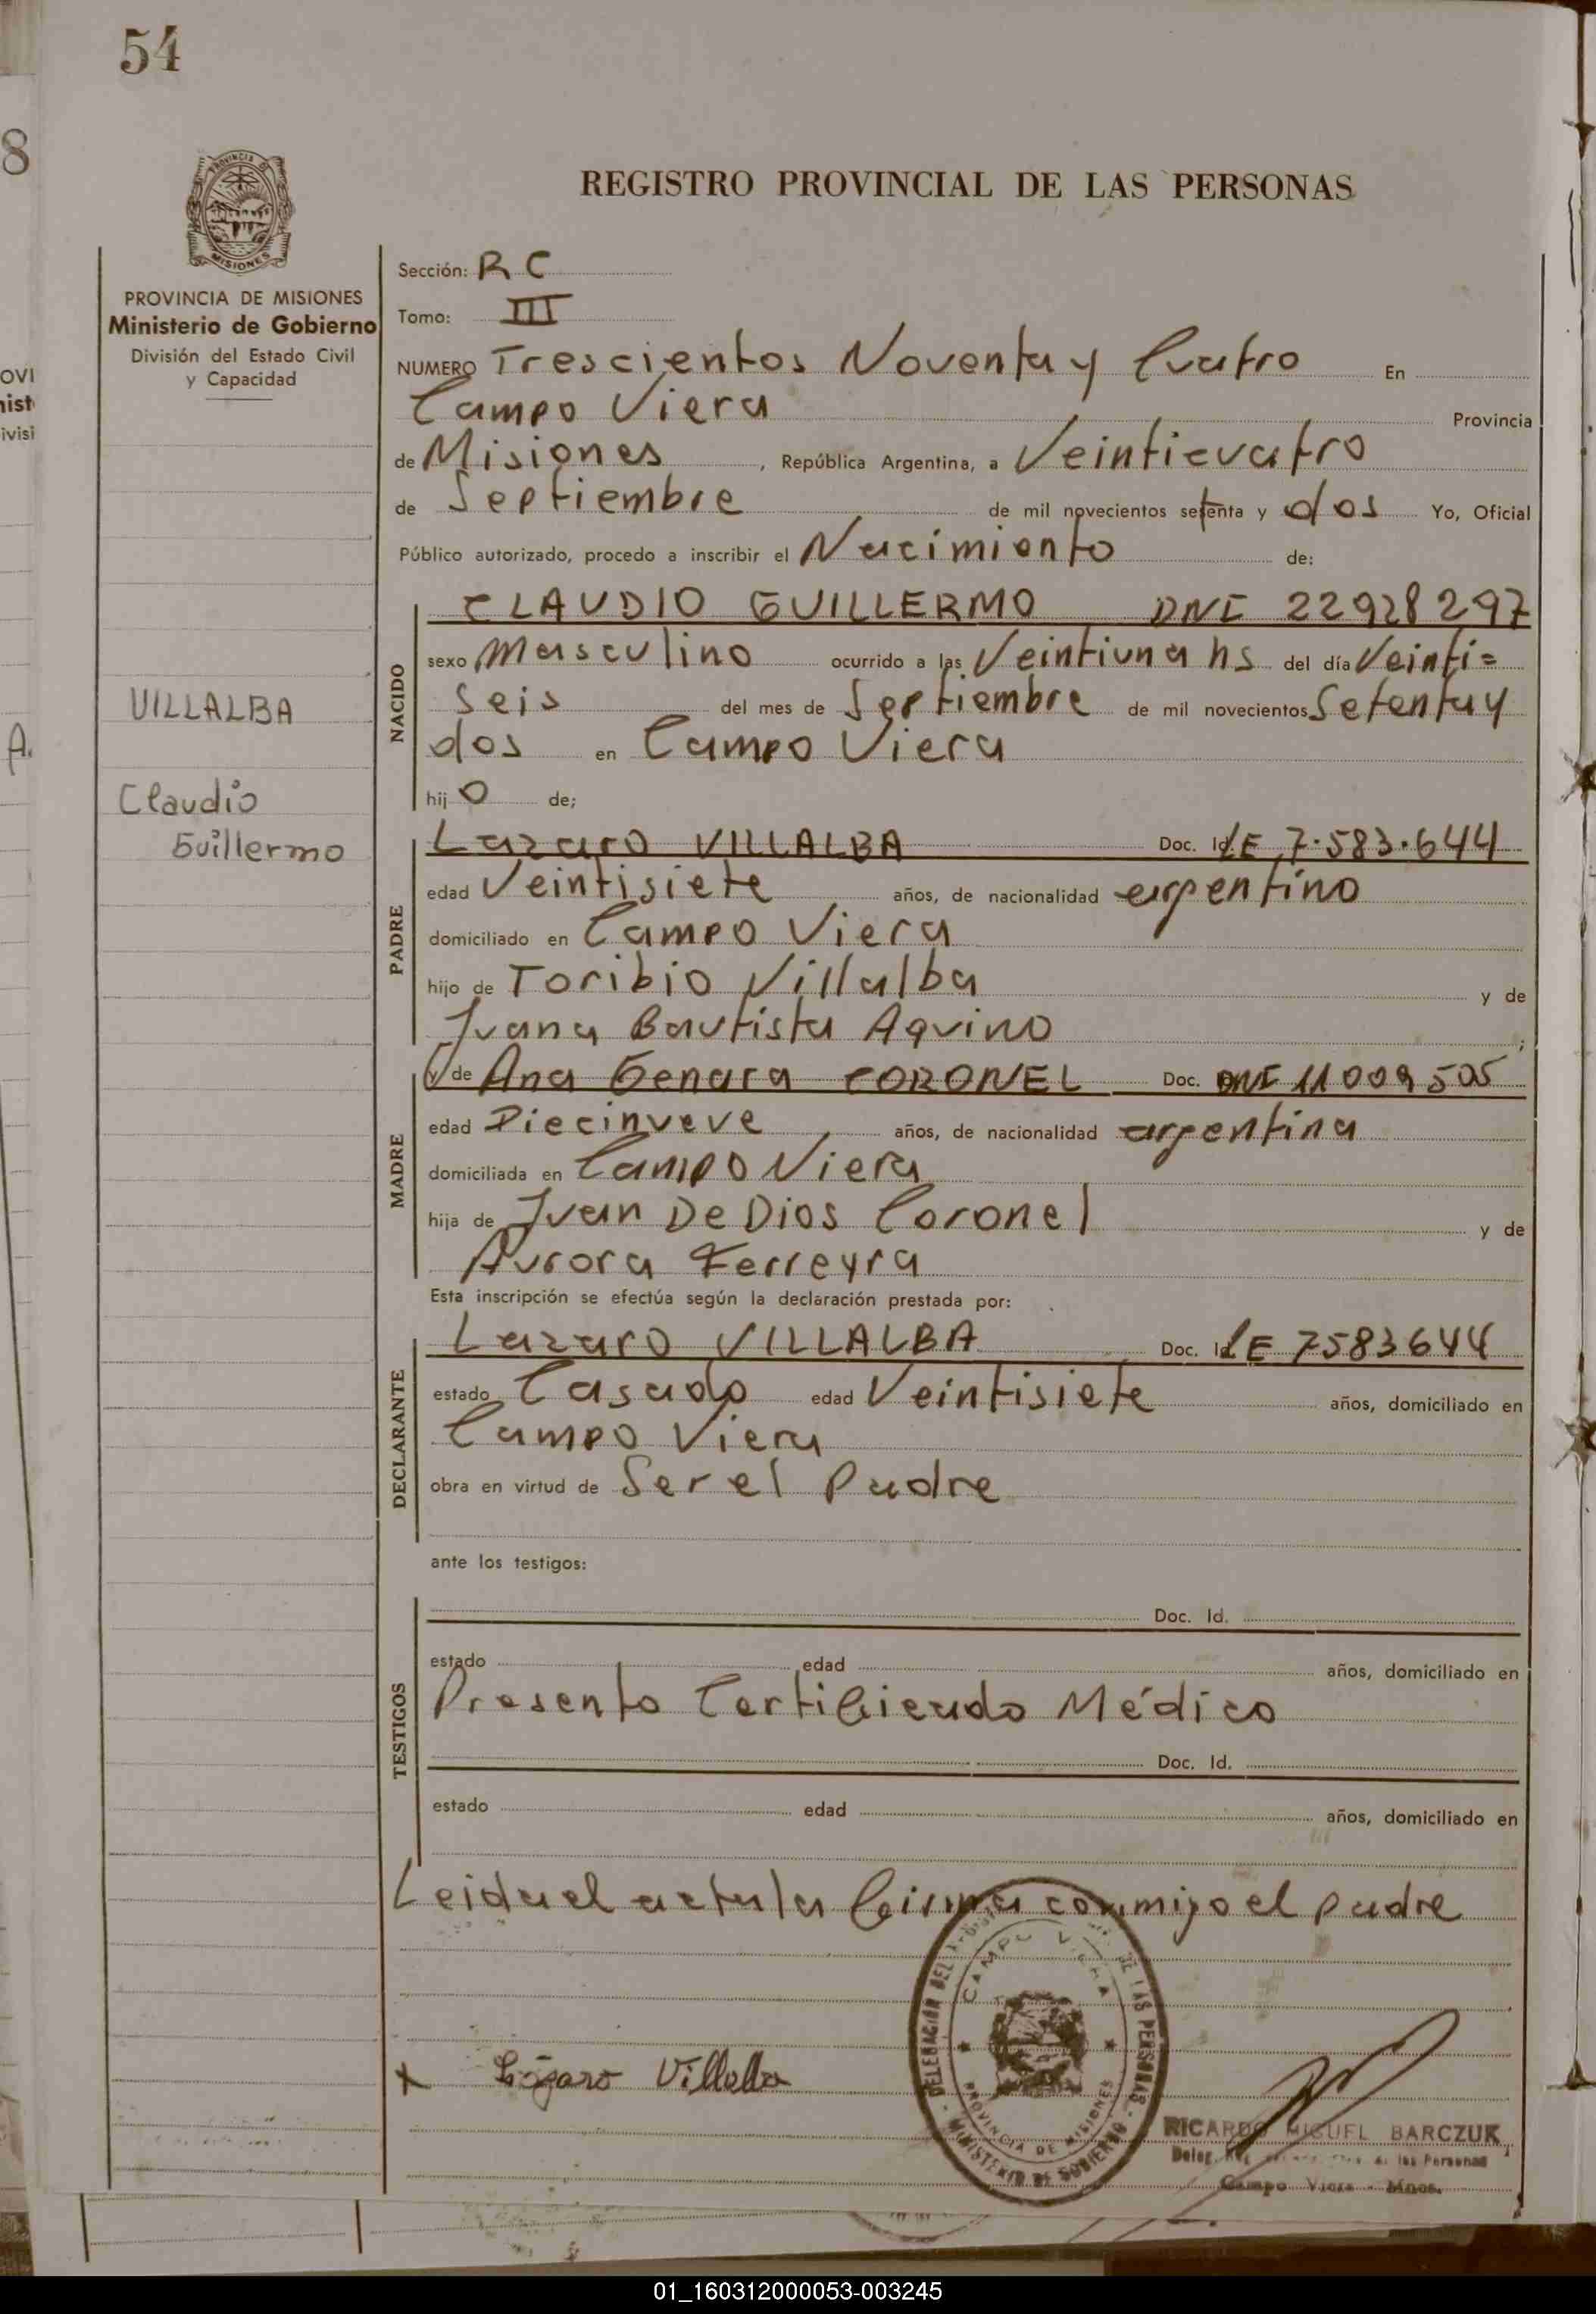 54
8
PROVINCIA DE
MISIONES
REGISTRO PROVINCIAL DE LAS PERSONAS
PROVINCIA DE MISIONES
Ministerio de Gobierno
División del Estado Civil
y Capacidad
OVI
nist
ivisi
A.
VILLALBA
Claudio
Guillermo
Sección: R C
Tomo: III
NUMERO Trescientos Noventa y Cuatro En
Campo Viera Provincia
de Misiones, República Argentina, a Veinticuatro
de Septiembre de mil novecientos setenta y dos Yo, Oficial
Público autorizado, procedo a inscribir el Nacimiento de:
NACIDO
CLAUDIO GUILLERMO DNI 22928297
sexo Masculino ocurrido a las Veintiuna hs del día Veinti=
seis del mes de Septiembre de mil novecientos Setenta y
dos en Campo Viera
hij o de;
PADRE
Lazaro VILLALBA Doc. Id. LE 7.583.644
edad Veintisiete años, de nacionalidad argentino
domiciliado en Campo Viera
hijo de Toribio Villalba y de
Juana Bautista Aquino;
MADRE
y de Ana Genara CORONEL Doc. DNI 11009505
edad Diecinueve años, de nacionalidad argentina
domiciliada en Campo Viera
hija de Juan De Dios Coronel y de
Aurora Ferreyra
Esta inscripción se efectúa según la declaración prestada por:
DECLARANTE
Lazaro VILLALBA Doc. Id. LE 7583644
estado Casado edad Veintisiete años, domiciliado en
Campo Viera
obra en virtud de Ser el Padre
ante los testigos:
TESTIGOS
Doc. Id.
estado edad años, domiciliado en
Presento Certificado Médico
Doc. Id.
estado edad años, domiciliado en
Leida el acta la firma conmigo el padre
DELEGACION DEL DE LAS PERSONAS
CAMPO VIERA
PROVINCIA DE MISIONES
MINISTERIO DE GOBIERNO
x Lázaro Villalba
RICARDO MIGUEL BARCZUK
Deleg. de las Personas
Campo Viera - Mnes.
01_160312000053-003245